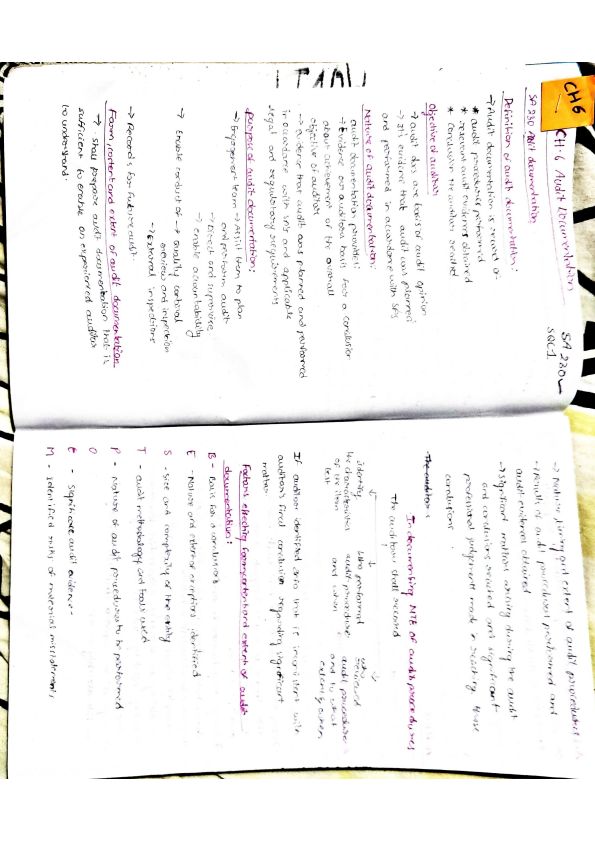 CH6
CH:6 Audit Documentation
SA 230
SQC1
SA 230 Audit documentation
Definition of audit documentation:
→ Audit documentation is record of-
* audit procedures performed
* relevant audit evidences obtained
* Conclusion the auditor reached
Objective of auditor:
→ audit docs are basis of audit opinion
→ It's evidence that audit was planned
and performed in accordance with SA's
Nature of audit documentation:
audit documentation provides:
→ Evidence on auditor's basis for a conclusion
about achievement of the overall
objective of auditor
→ evidence that audit was planned and performed
in accordance with SA's and applicable
legal and regulatory requirements
Purpose of audit documentation:
→ Engagement team → Assist them to plan
and perform audit
→ Direct and supervise
→ enable accountability
→ Enable conduct of → Quality control
reviews and inspection
→ External inspections
→ Records for future audit.
Form, content and extent of audit documentation
→ Shall prepare audit documentation that is
sufficient to enable an experienced auditor
to understand:
→ Nature, timing and extent of audit procedures
→ Results of audit procedures performed and
audit evidences obtained
→ Significant matters arising during the audit
and conclusions reached and significant
professional judgements made in reaching those
conclusions.
In documenting NTE of audit procedures
The auditor shall record
identify
the characteristics
of item
test
who performed
audit procedure
and when
who
reviewed
audit procedures
and to what
extent, when
If auditor identified info that is inconsistent with
auditor's final conclusion regarding significant
matter.
Factors effecting form, content and extent of audit
documentation:
B - Basis for a conclusions
E - Nature and extent of exceptions identified
S - Size and complexity of the entity
T - audit methodology and tools used
P - Nature of audit procedures to be performed
O
E - significance audit evidence.
M - Identified risks of material misstatements